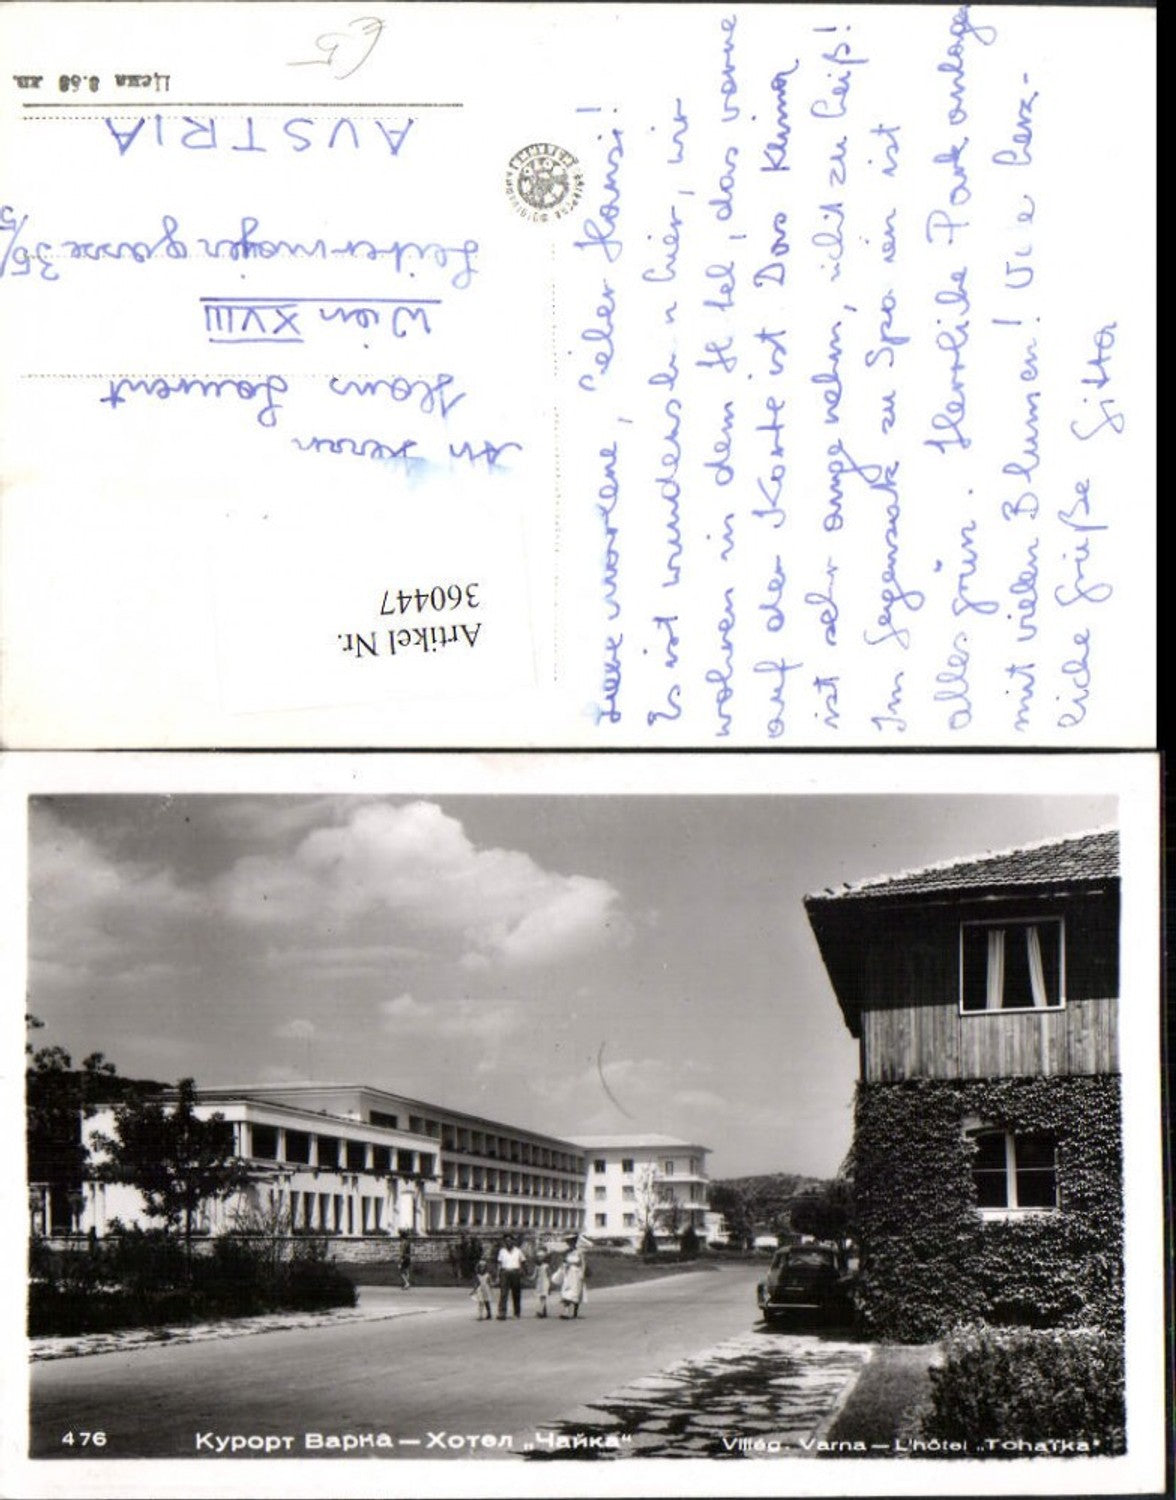 Liebe Marlene, lieber Hansi!
Es ist wunderschön hier, wir
wohnen in dem Hotel, das vorne
auf der Karte ist. Das Klima
ist sehr angenehm, nicht zu heiß!
Im Gegensatz zu Spanien ist
alles grün. Herrliche Parkanlagen
mit vielen Blumen! Viele herz-
liche Grüße Gitta
An Herrn
Hans Laurent
Wien XVIII
gasse 35/5
AUSTRIA
Цена 0.60 лв.
Artikel Nr.
360447
476 Курорт Варна — Хотел „Чайка“ Villég. Varna — L'hôtel „Tchaïka“